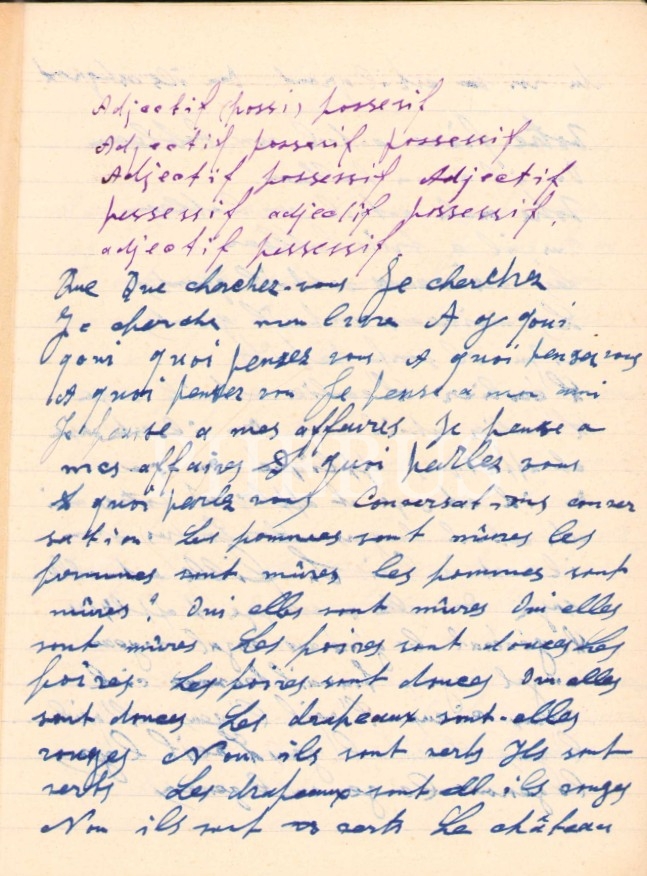 Adjectif (possi) possesif
Adjectif possesif possessif
Adjectif possessif Adjectif
possessif adjectif possessif.
adjectif possessif
Que Que cherchez-vous Je cherchez
Je cherche mon livre A q qoui
qoui quoi pensez vous A quoi pensez vous
A quoi penser vou Je pense a mon ami
Je pense a mes affaires Je pense a
mes affaires A quoi parlez vous
A quoi parlez vous Conversations conver
sation Les pommes sont mûres les
pommes sont mûres les pommes sont
mûres? Oui elles sont mûres Oui elles
sont mûres Les poires sont douces Les
poires Les poires sont douces Oui elles
sont douces Les drapeaux sont-elles
rouges Non ils sont verts Ils sont
verts Les drapeaux sont ell ils rouges
Non ils sont verts Le château